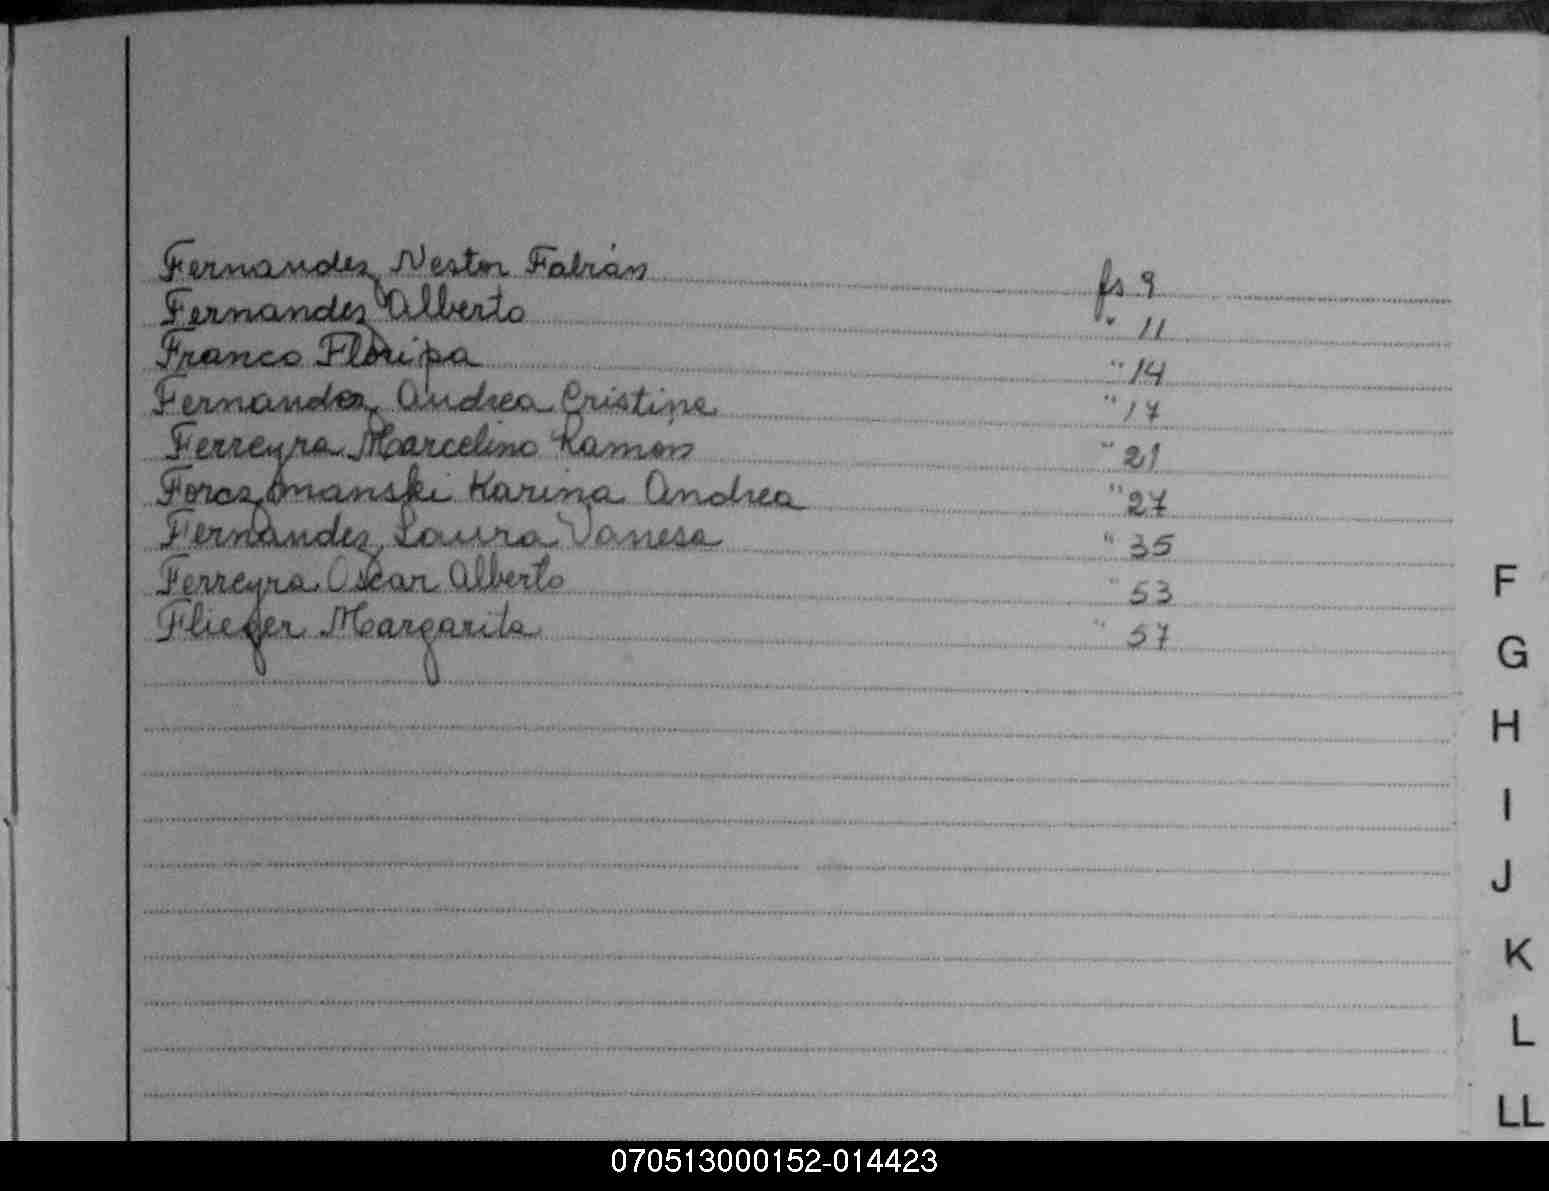 Fernandez Nestor Fabián fs 9
Fernandez Alberto " 11
Franco Floripa " 14
Fernandez Andrea Cristina " 17
Ferreyra Marcelino Ramón " 21
Forczmanski Karina Andrea " 27
Fernandez Laura Vanesa " 35
Ferreyra Oscar Alberto " 53
Flieger Margarita " 57
F
G
H
I
J
K
L
LL
070513000152-014423